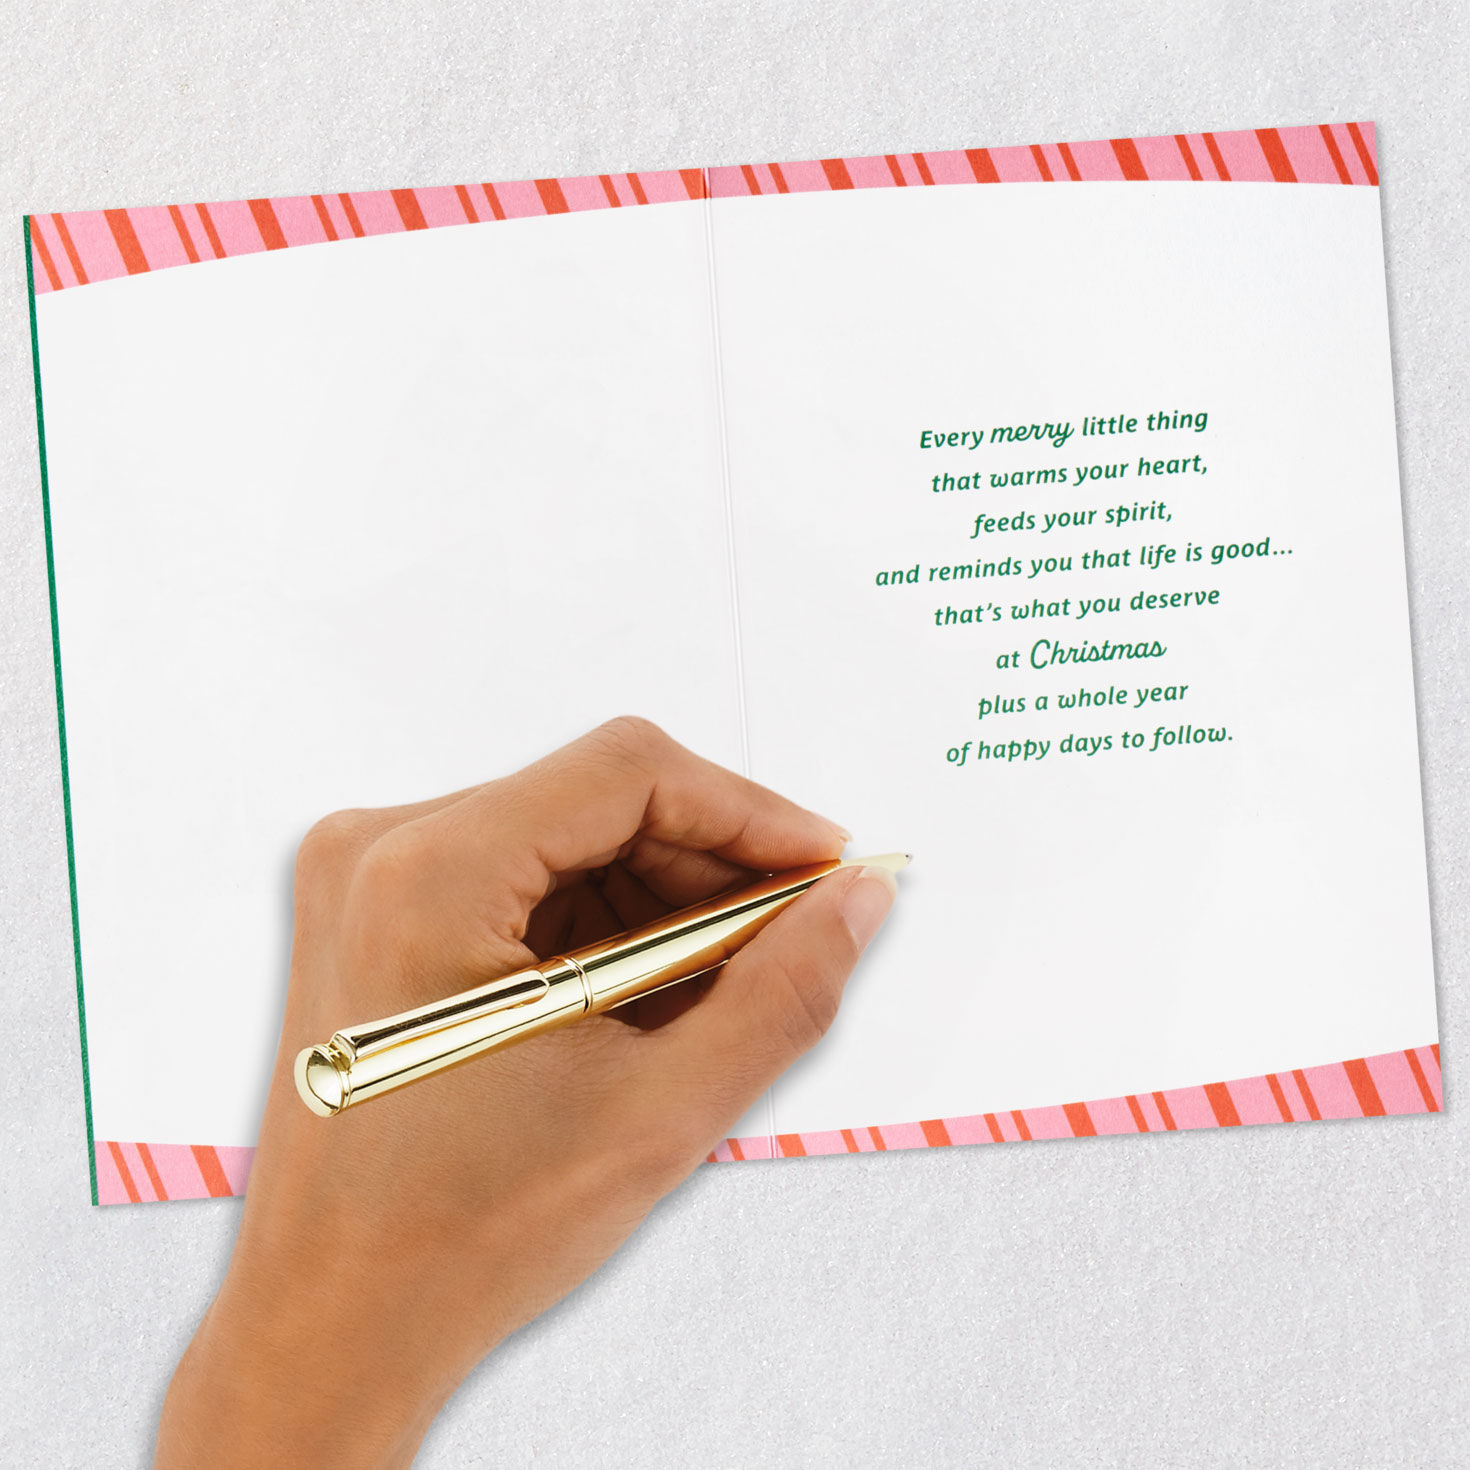 Every merry little thing
that warms your heart,
feeds your spirit,
and reminds you that life is good...
that's what you deserve
at Christmas
plus a whole year
of happy days to follow.